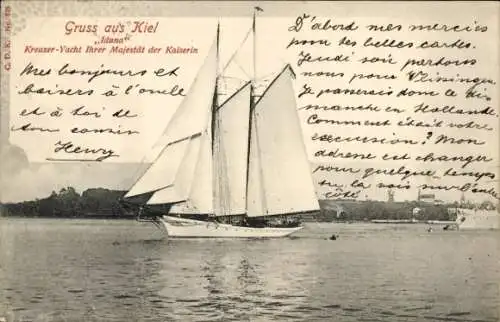 Gruss aus Kiel
"Iduna"
Kreuzer-Yacht Ihrer Majestät der Kaiserin
Mes bonjours et
baisers à l'oncle
et à toi de
ton cousin
Henry
D'abord mes mercis
pour tes belles cartes.
Jeudi soir partons
nous pour Vlissingen
Je passerais donc le di-
manche en Hollande.
Comment était votre
excursion? Mon
adresse est changer
pour quelque temps
côté